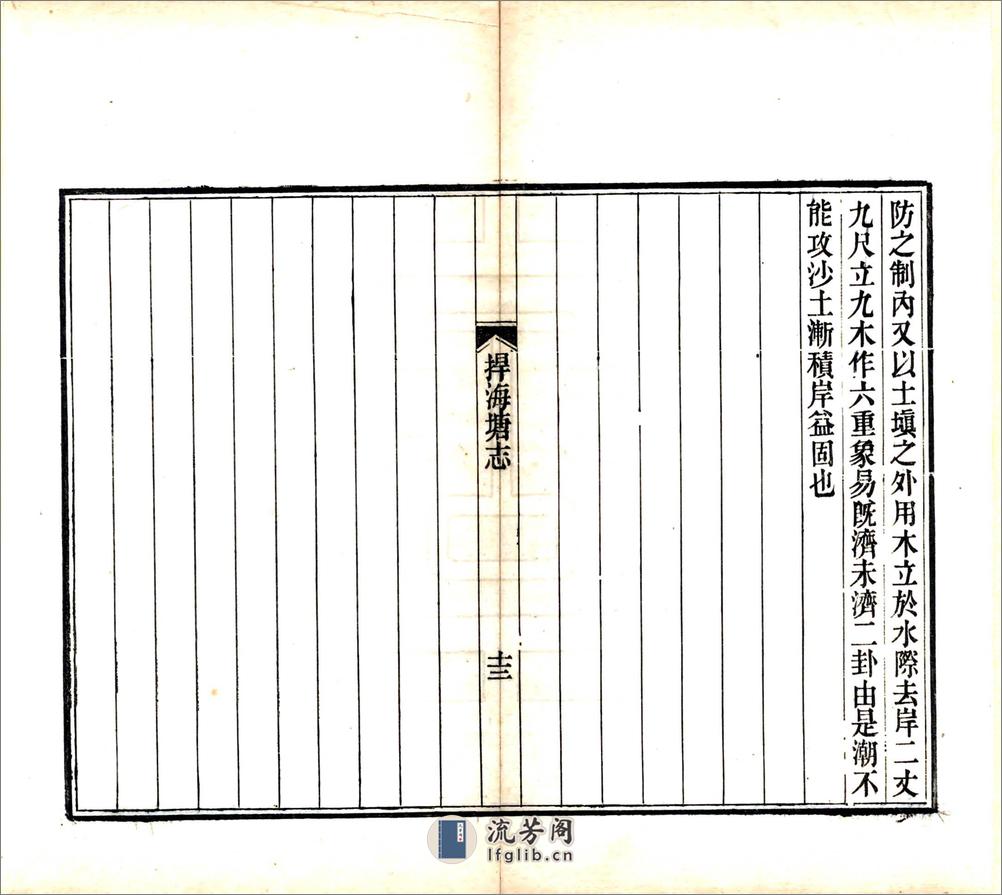 防之制內又以土塡之外用木立於水際去岸二丈
九尺立九木作六重象易旣濟未濟二卦由是潮不
能攻沙土漸積岸益固也
捍海塘志
十三
流芳阁
lfglib.cn